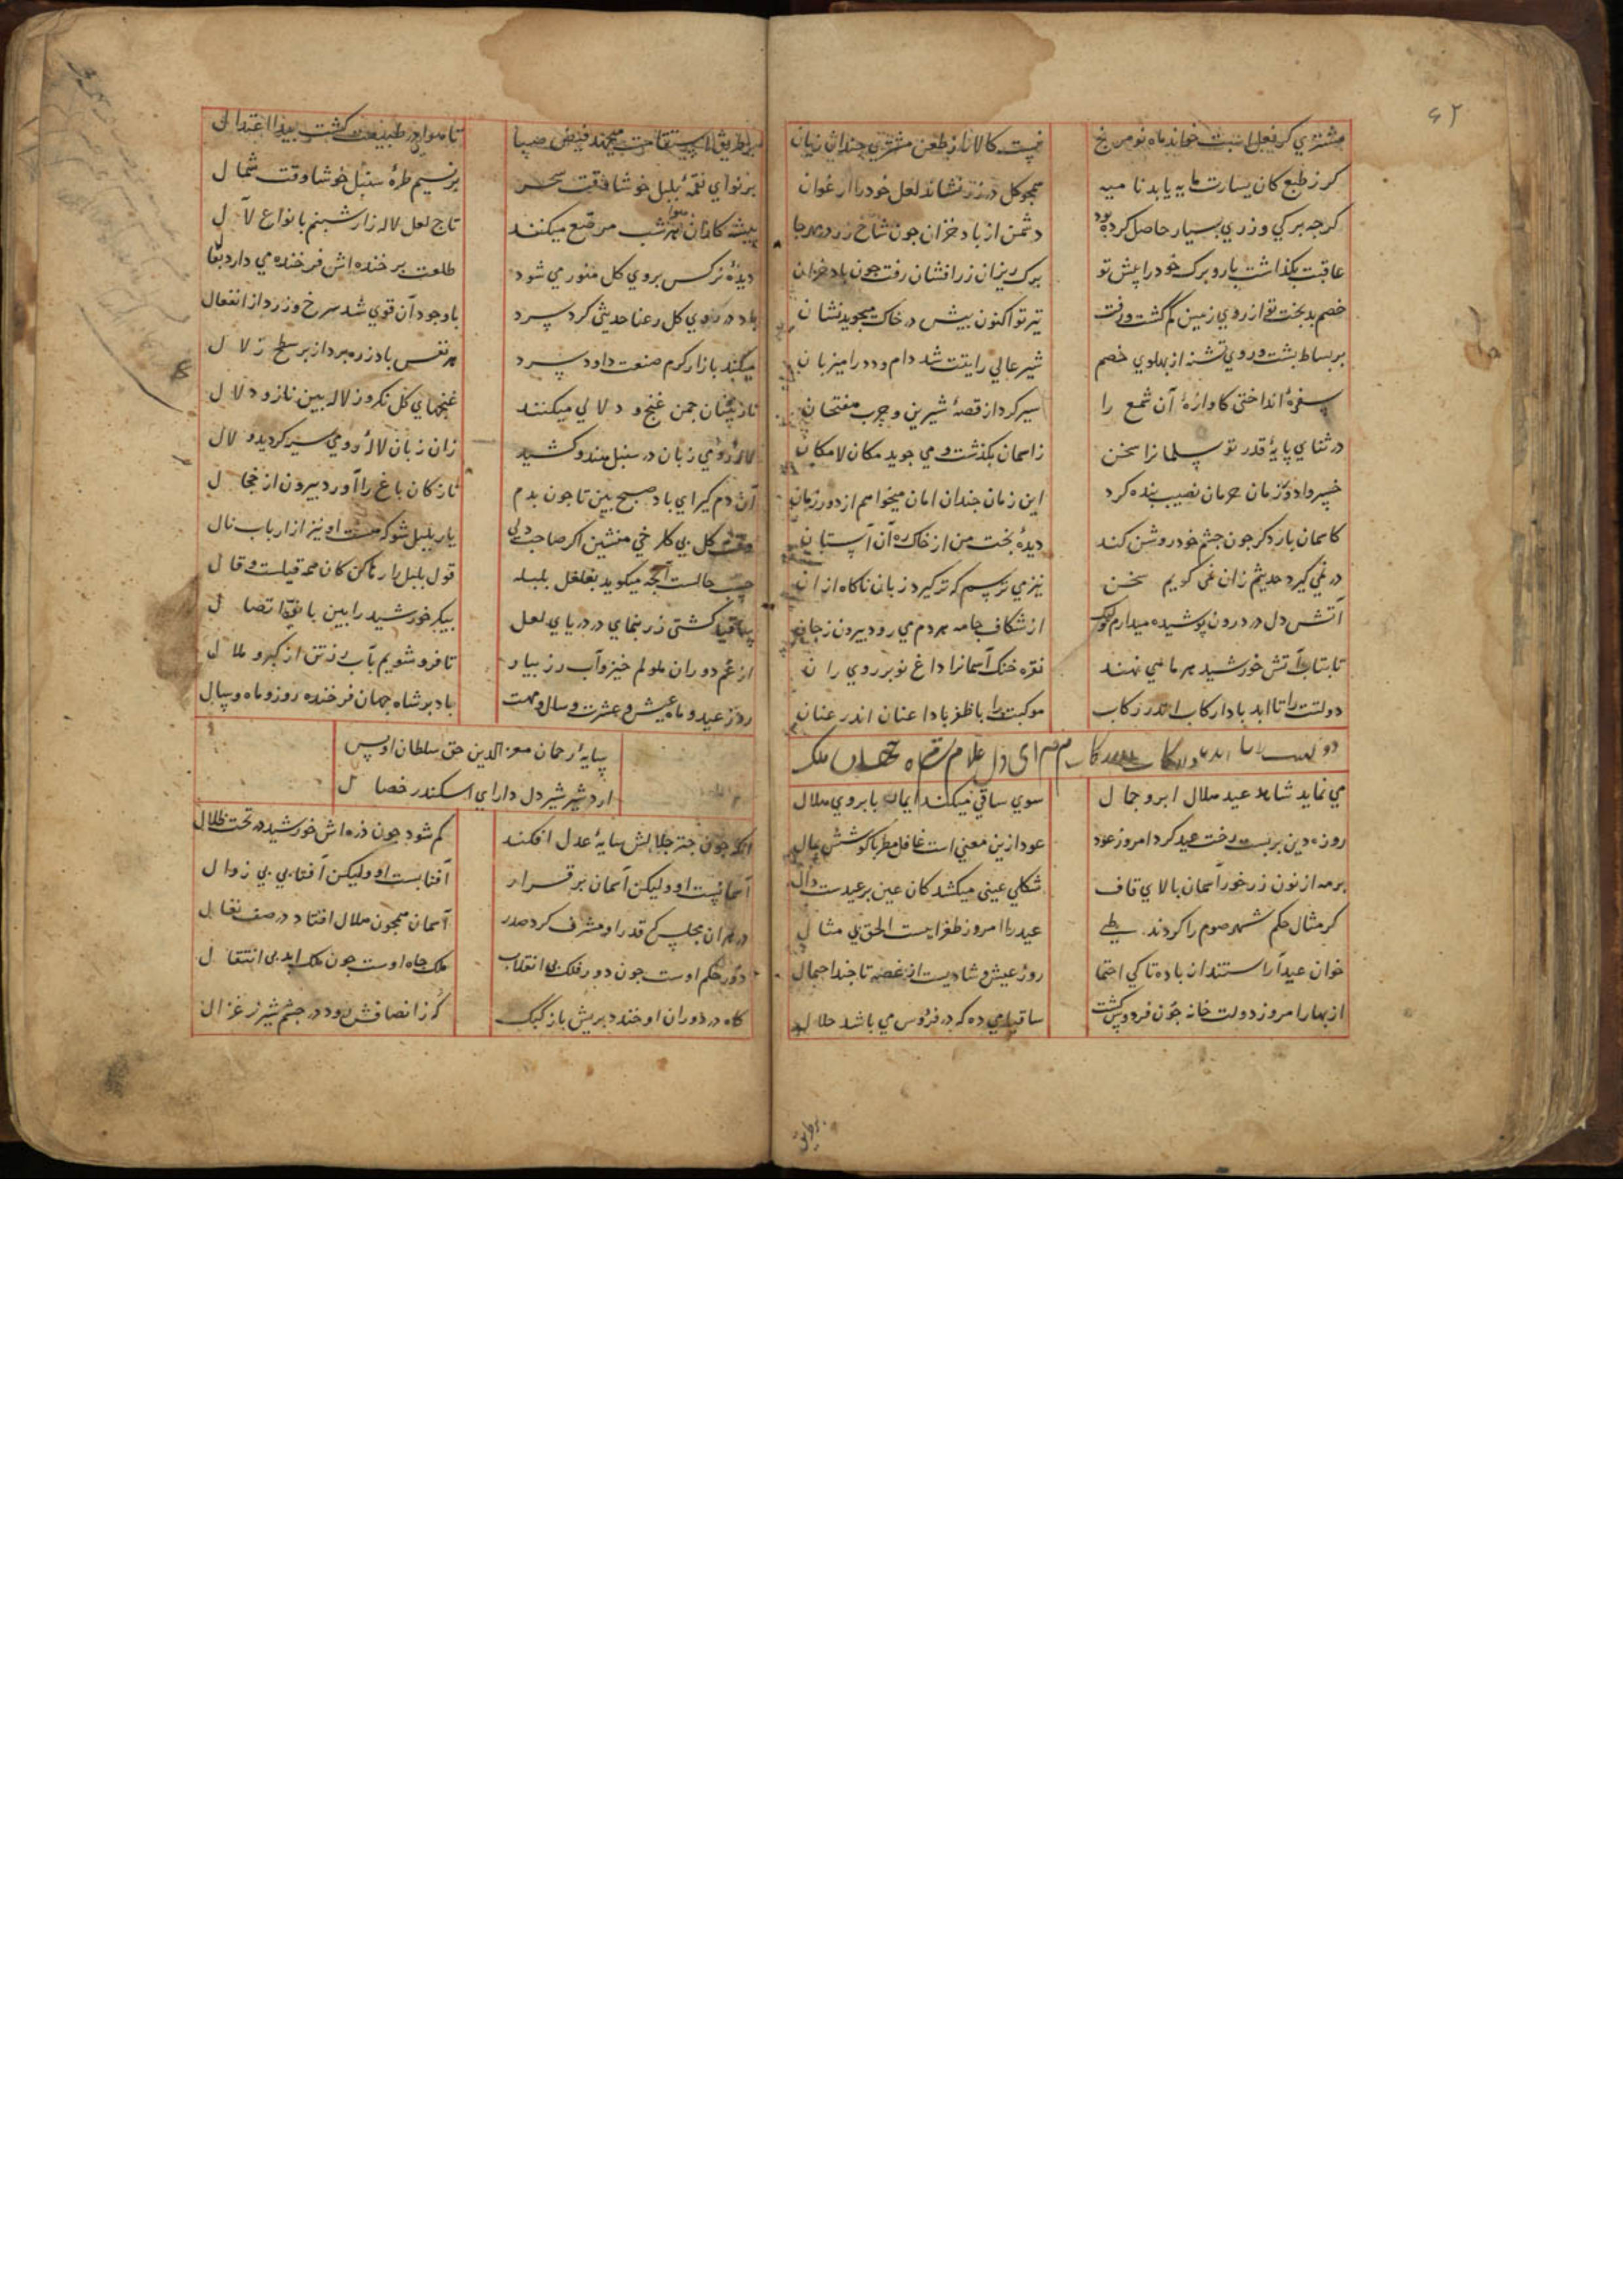 ۶۲
مشتري كر فعل است خواند ماه نو مرنج
نيست كالا را از طعن مشتري چندان زيان
كر ز طبع كان يسارت مايه يابد نا ميه
همجو كل در زر نشاند لعل خود را ارغوان
كرجه بركي وزري بسيار حاصل كرده بود
دشمن از باد خزان جون شاخ زر در هر جا
عاقبت بكذاشت بار و برك خود را پيش تو
برك ريزان زر افشان رفت جون باد خزان
خصم بد بخت تو از روي زمين كم كشت و رفت
تير تو اكنون پيش در خاك ميجويد نشان
بر بساط پشت و روي تشنه از پهلوي خصم
شير عالي رايتت شد دام و دد را ميزبان
سفرۀ انداختي كاوازۀ آن شمع را
سير كرد از قصۀ شيرين و چرب هفتخان
در ثناي پايۀ قدر تو سلمانرا سخن
ز اسمان بكذشت و مي جويد مكان لا مكان
خسروا دور زمان حرمان نصيب بنده كرد
اين زمان جندان امان ميخواهم از دور زمان
كاسمان بار دكر جون جشم خود روشن كند
ديدۀ بخت من از خاك ره آن آستان
در نمي كيرد حديثم زان نمي كويم سخن
نيز مي ترسم كه تر كيرد زبان ناكاه از ان
آتش دل در درون پوشيده ميدارم ولي
از شكاف جامه هر دم مي رود بيرون زجان
تا بتاب آتش خورشيد هر ماهي نهند
نقره خنك آسمانرا داغ نو بر روي ران
دولتت را تا ابد بادا ركاب اندر ركاب
موكبت را با ظفر بادا عنان اندر عنان
اي دل غلام شاه جهان
مي نمايد شاهد عيد هلال ابرو جمال
سوي ساقي ميكند ايما با بروي هلال
روزه دين بربست رخت عيد كرد امروز عود
عود ازين معني است غافل مطربا كوشش بمال
بر مه از نون زر خور آسمان بالاي قاف
شكلي عيني ميكشد كان عين بر عيدست دال
كر مثال حكم شهر صوم را كردند طي
عيد را امروز طغرا ايست الحق بي مثال
خوان عيد آراستند از باده تا كي احتما
روز عيش و شاديست از غصه تا جند احتمال
از بهار امروز دولت خانه جون فردوس كشت
ساقيا مي ده كه در فردوس مي باشد حلال
بر طريق استقامت ميجهد فيض صبا
تا هوا در طبيعت كشت پيدا اعتدال
بر نواي نغمۀ بلبل خوشا وقت سحر
بر نسيم طرۀ سنبل خوشا وقت شمال
پيشه كاران هوا هر شب مرصع ميكنند
تاج لعل لاله زار شبنم با نواع لآل
ديدۀ نركس بروي كل منور مي شود
طلعت بر خنده اش فرخنده مي دارد بفال
باد در روي كل رعنا حديثي كرد سرد
با وجود آن قوي شد سرخ و زرد از انفعال
ميكند بازار كرم صنعت داود سرد
هر نفس باد زره پرداز بر سطح زلال
نازنينان جمن غنج و دلالي ميكنند
غنجهاي كل نكر وز لاله بين ناز و دلال
لالۀ رومي زبان در سنبل هندو كشيد
زان زبان لالۀ رومي سيه كرديد و لال
آن دم كيراي باد صبح بين تا جون بدم
نازكان باغ را آورد بيرون از خجال
وقت كل بي كلر خي منشين اكر صاحب دلي
يار بلبل شو كه هست او نيز از ارباب حال
حسب حالست آنجه ميكويد بغلغل بلبله
قول بلبل را رها كن كان همه قيلست و قال
ساقيا كشتي زر بنماي در درياي لعل
پيكر خورشيد را بين با قمر اتصال
از غم دوران ملولم خيز و آب رز بيار
تا فرو شويم بآب رز تن از كرد ملال
روز عيد و ماه عيش و عشرت و سال و مهت
باد بر شاه جهان فرخنده روز و ماه و سال
سايۀ رحمان معز الدين حق سلطان اويس
اردشير شير دل داراي اسكندر خصال
آنكه جون جتر جلالش سايۀ عدل افكند
كم شود جون ذره اش خورشيد در تحت ظلال
آسمانيست او و ليكن آسمان بر قرار
آفتابست او و ليكن آفتابي بي زوال
در هر ان مجلس كه قدر او مشرف كرد صدر
آسمان همجون هلال افتاد در صف نعال
دور حكم اوست جون دور فلك بي انقلاب
ملك جاه اوست جون ملك ابد بي انتقال
كاه در دوران او خندد بريش باز كبك
كه ز انصافش رود در جشم شير نر غزال